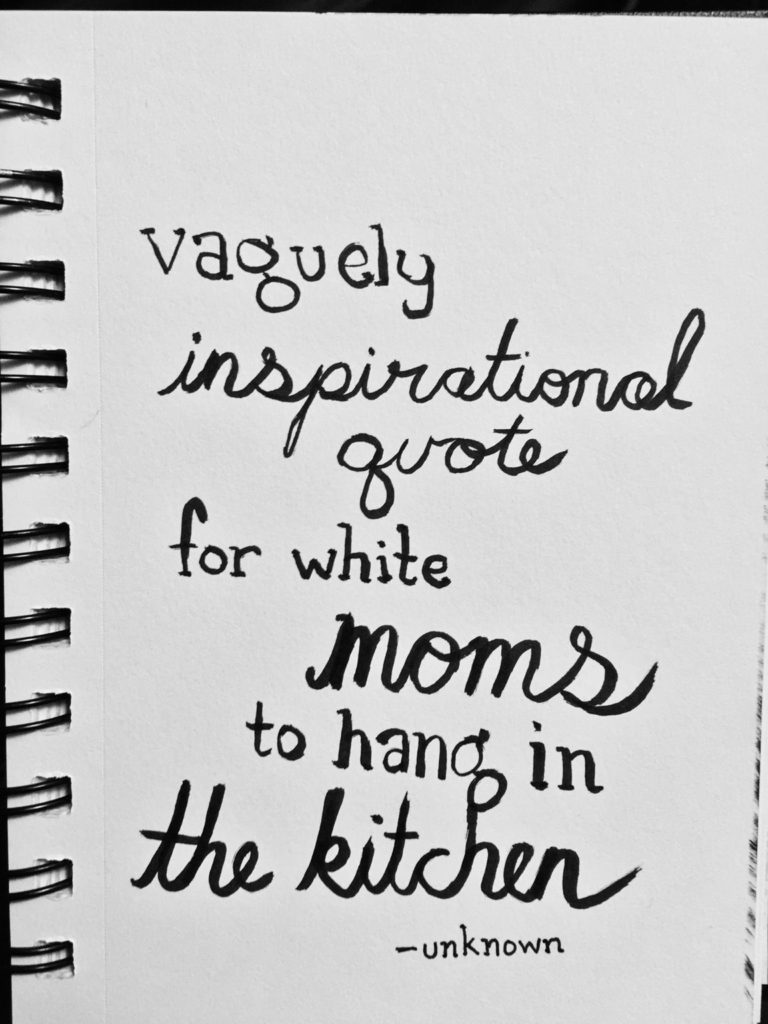 vaguely
inspirational
quote
for white
moms
to hang in
the kitchen
-unknown